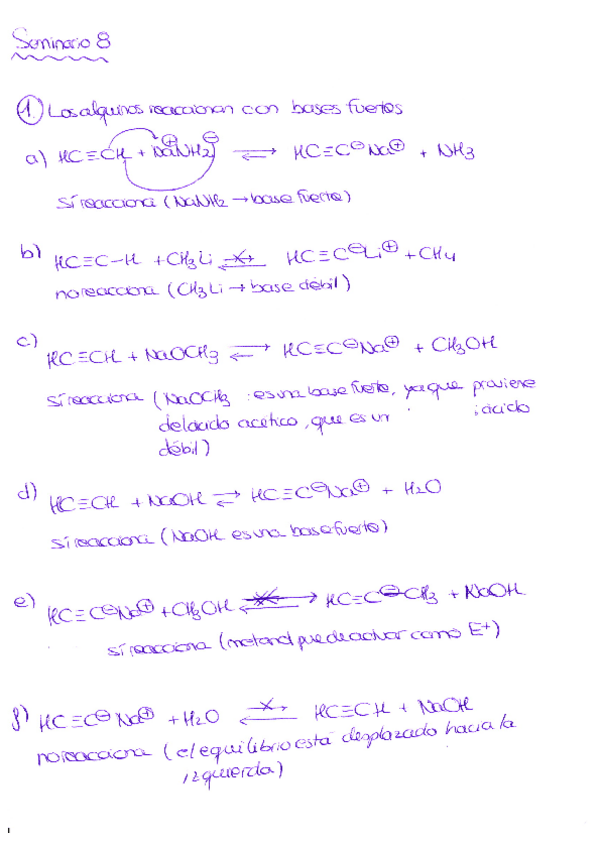 Seminario 8
① Los alquinos reaccionan con bases fuertes
a) HC≡CH + NaNH2 ⇌ HC≡C⊖Na⊕ + NH3
⊕ ⊖
Sí reacciona (NaNH2 → base fuerte)
b) HC≡C-H + CH3Li ⇌ HC≡C⊖Li⊕ + CH4
no reacciona (CH3Li → base débil)
c) HC≡CH + NaOCH3 ⇌ HC≡C⊖Na⊕ + CH3OH
sí reacciona (NaOCH3 : es una base fuerte, ya que proviene
del acido acético, que es un ácido
débil)
d) HC≡CH + NaOH ⇌ HC≡C⊖Na⊕ + H2O
sí reacciona (NaOH es una base fuerte)
e) HC≡C⊖Na⊕ + CH3OH ⇌ HC≡C⊖CH3 + NaOH
sí reacciona (metanol puede actuar como E+)
f) HC≡C⊖Na⊕ + H2O ⇌ HC≡CH + NaOH
no reacciona (el equilibrio está desplazado hacia la
izquierda)